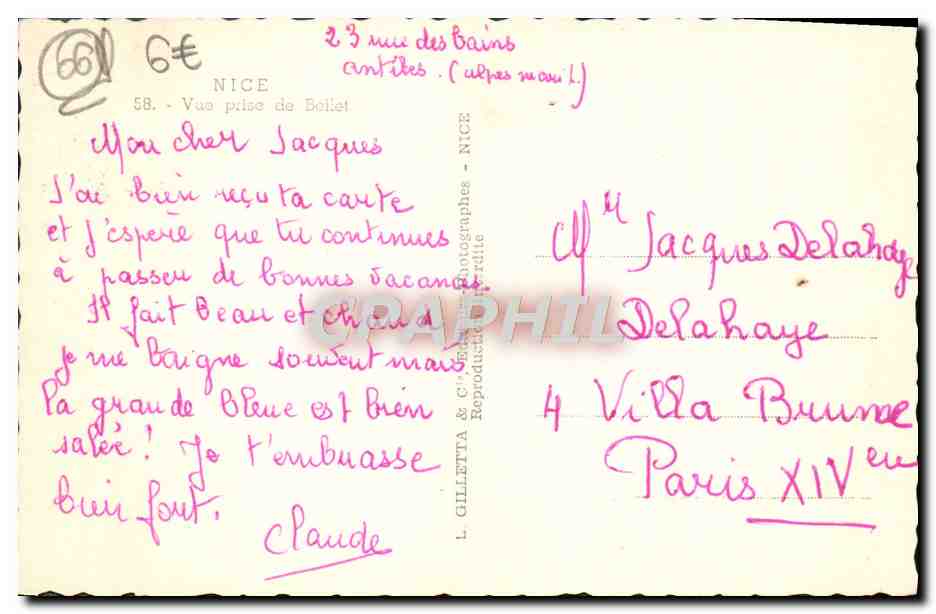 66
6€
23 rue des bains
antibes. (alpes marit.)
NICE
58. - Vue prise de Bellet
Mon cher Jacques
J'ai bien reçu ta carte
et j'espère que tu continues
à passer de bonnes vacances.
Il fait beau et chaud
je me baigne souvent mais
la grande bleue est bien
salée! Je t'embrasse
bien fort.
Claude
L. GILLETTA & Cie, Editeurs-Photographes - NICE
Reproduction interdite
Mr Jacques Delahaye
Delahaye
4 Villa Brune
Paris XIVeu
CPAPHIL